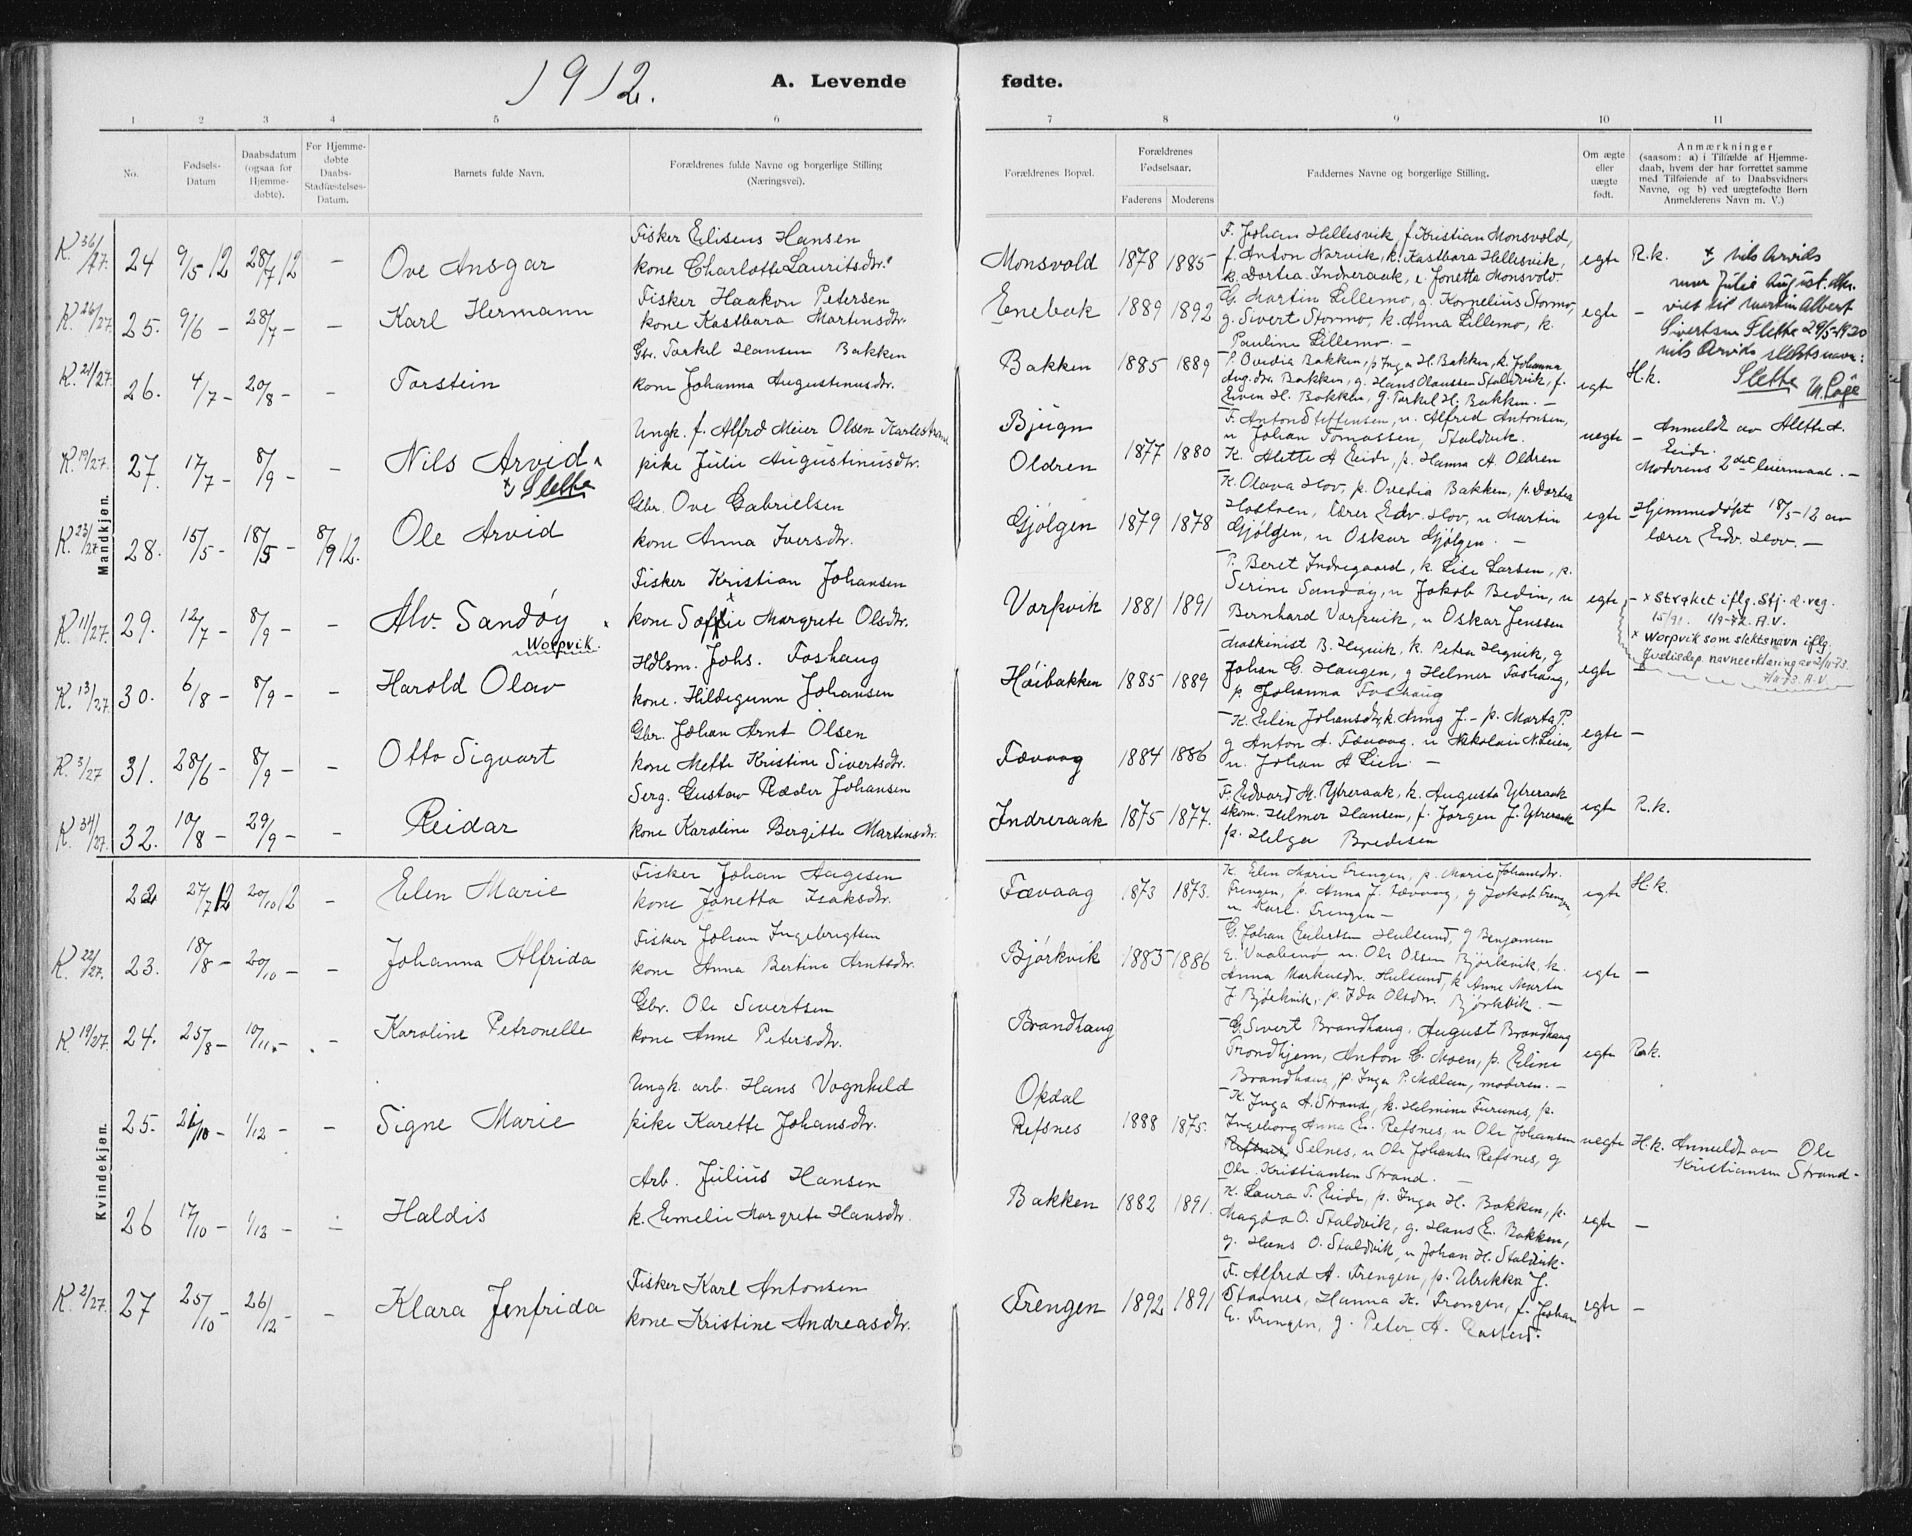 1912.
A. Levende fødte.
1 2 3 4 5 6 7 8 9 10 11
No.
Fødsels-Datum
Daabsdatum (ogsaa for Hjemme-døbte).
For Hjemme-døbte Daabs-Stadfæstelses-Datum.
Barnets fulde Navn.
Forældrenes fulde Navne og borgerlige Stilling (Næringsvei).
Forældrenes Bopæl.
Forældrenes Fødselsaar.
Faderens Moderens
Faddernes Navne og borgerlige Stilling.
Om ægte eller uægte født.
Anmærkninger
(saasom: a) i Tilfælde af Hjemme-
daab, hvem der har forrettet samme
med Tilføiende af to Daabsvidners
Navne, og b) ved uægtefødte Børn
Anmelderens Navn m. V.)
Mandkjøn.
K. 36/27. 24 9/5 12 28/7 12 – Ove Ansgar
Fisker Edisens Hansen
kone Charlotte Lauritsdtr.
Monsvold 1878 1885
F. Johan Hellesvik, f. Kristian Monsvold,
f. Anton Narvik, k. Kastbara Hellesvik,
k. Dortea Indreraak, Jonetta Monsvold.
egte R.k.
K. 26/27. 25. 9/6 – 28/7 – – Karl Hermann
Fisker Haakon Petersen
kone Kastbara Martinsdtr.
Enebok 1889 1892
G. Martin Lillemo, g. Kornelius Stormo,
g. Sivert Stormo, k. Anna Lillemo, k.
Pauline Lillemo. –
egte –
K. 21/27. 26. 4/7 – 20/8 – – Torstein
Gbr. Torkil Hansen Bakken
kone Johanna Augustinusdtr.
Bakken 1885 1889
P. Ovedia Bakken, p Inga H. Bakken, k. Johanna
Aug.dtr. Bakken, g. Hans Olaussen Staldvik, f.
Even H. Bakken, g. Torkel H. Bakken. –
egte H.k.
Nils Arvids
mor Julie August.dtr.
viet til Martin Albert
Sivertsen Slette 29/5-1920
Nils Arvids slektsnavn:
Slette
K. 19/27. 27. 17/7 – 8/9 – – Nils Arvid
Slette
Ungk. f. Alfrd Meier Olsen Karlestrand
pike Julie Augustinusdtr.
Bjugn
Oldren 1877 1880
F. Anton Steffensen, u. Alfred Antonsen,
u Johan Tomassen, Staldvik.
K. Alette A Eide, p. Hanna A. Oldren
uegte – Anmeldt av Alette A.
Eide.
Moderens 2det leiermaal. –
K. 23/27 28. 15/5 – 18/5 – 8/9 12. Ole Arvid
Gbr. Ove Gabrielsen
kone Anna Iversdtr.
Gjølgen 1879 1878
K. Olava Hov, p. Ovedia Bakken, p. Dortea
Hostoen, lærer Edv. Hov, u Martin
Gjølgen, u Oskar Gjølgen. –
egte Hjemmedøpt 18/5-12 av
lærer Edv. Hov. –
K. 11/27. 29. 12/7 – 8/9 – – Alv. Sandøy
Worpvik.
Fisker Kristian Johansen
kone Soffie Margrete Olsdtr.
Vorpvik 1881 1891
P. Beret Indregaard, k. Lise Larsen, p.
Serine Sandøy, u Jakob Bedin, u
Bernhard Vorpvik, u Oskar Jenssen
egte – x Strøket iflg. Stj. d. reg.
15/91. 1/9-72. A.V.
x Worpvik som slektsnavn iflg.
Justisdep. navneerklæring av 2/11-73.
7/11 73. A.V.
K. 13/27. 30. 6/8 – 8/9 – – Harold Olav
Hdlsm. Johs. Foshaug
kone. Hildegunn Johansen
Høibakken 1885 1889
Maskinist B. Hegvik, k. Petra Hegvik, g
Johan G. Haugen, g Helmer Foshaug,
p Johanna Foshaug
egte –
K. 3/27 31. 28/6 – 8/9 – – Otto Sigvart
Gbr. Johan Arnt Olsen
kone Mette Kristine Sivertsdtr.
Fævaag 1884 1886
K. Elin Johansdtr, k. Anna J. – p. Marta P.
g Anton A. Fævaag. u Nikolai N. Lein,
u. Johan A Lein. –
egte –
K. 34/27. 32. 10/8 – 29/9 – – Reidar
Serg. Gustav Ræder Johansen
kone Karoline Bergitte Martinsdtr.
Indreraak 1875 1877.
F. Edvard M. Ytreraak, k. Augusta Ytreraak
skom. Helmer Hansen, f. Jørgen J. Ytreraak
p. Helga Bredesen
egte R.k.
Kvindekjøn.
22 27/7 12 20/10 12 – Elen Marie
Fisker Johan Aagesen
kone Jonetta Isaksdtr.
Fævaag 1873 1873.
K. Elen Marie Frengen, p. Marie Johansdtr.
Frengen, p. Anna J. Fævaag, g Jakob Frengen,
u Karl. Frengen –
egte H.k.
K. 22/27. 23. 18/8 – 20/10 – – Johanna Alfrida
Fisker Johan Ingebrigtsen
kone Anna Bertine Arntsdtr.
Bjørkvik 1883 1886
G. Johan Eilertsen Hulsund, g Benjamin
E. Vaabenø u. Ole Olsen Bjørkvik, k.
Anna Markusdtr. Hulsund, k Anne Marta
J Bjørkvik, p. Ida Olsdtr. Bjørkvik. –
egte –
K. 19/27. 24. 25/8 – 10/11 – – Karoline Petronelle
Gbr. Ole Sivertsen
kone Anne Petersdtr.
Brandhaug
G. Sivert Brandhaug, August Brandhaug
Trondhjem, Anton C. Moen, p. Eline
Brandhaug, p. Inga P. Mælan, moderen. –
egte R.k.
25. 21/10 – 1/12 – – Signe Marie
Ungk. arb. Hans Vognhild
pike Karette Johansdtr.
Opdal
Refsnes 1888 1875.
K. Inga A. Strand, k. Helmine Furunes, p.
Ingeborg Anna E. Refsnes, u Ole Johansen
Refsnes, Selnes, u Ole Johansen Refsnes, g
Ole Kristiansen Strand. –
uegte H.k. Anmeldt av Ole
Kristiansen Strand –
26 17/10 – 1/12 – – Haldis
Arb. Julius Hansen
k. Emelie Margrete Hansdtr.
Bakken 1882 1891.
K. Laura T. Eide, p. Inga H. Bakken, p.
Magda O. Staldvik, g. Hans E. Bakken,
g. Hans O. Staldvik, u Johan H. Staldvik.
egte –
K. 2/27. 27 25/10 – 26/12 – – Klara Jenfrida
Fisker Karl Antonsen
kone Kristine Andreasdtr.
Frengen 1892 1891
F. Alfred A. Frengen, p. Ulrikka J.
Stadnes, Hanna K. Frengen, f. Johan
E. Frengen, g. Peter A.
egte –